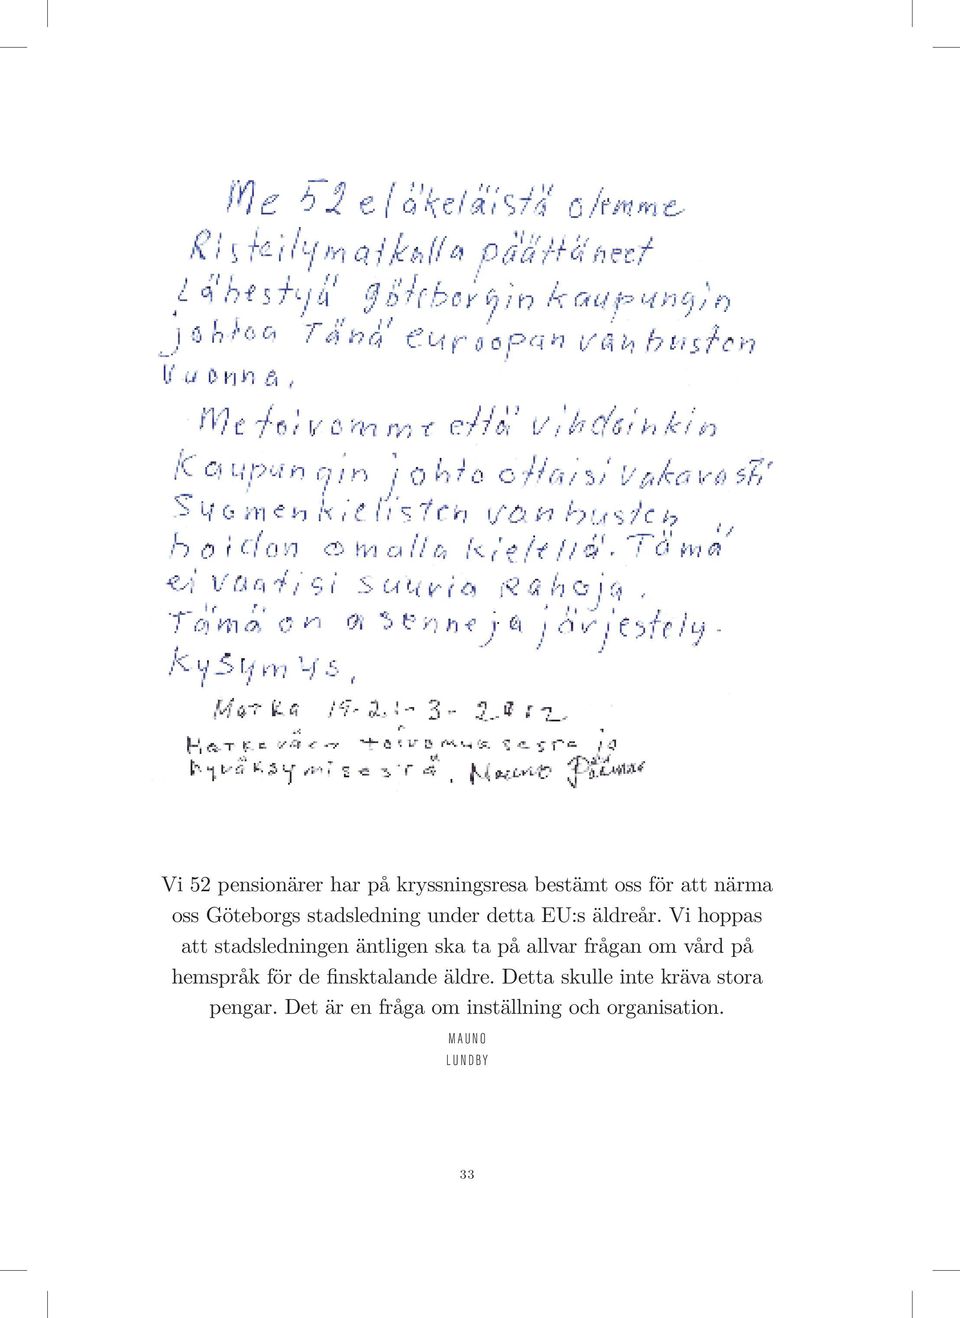 Me 52 eläkeläistä olemme
Risteilymatkalla päättäneet
Lähestyä göteborgin kaupungin
johtoa Tänä euroopan vanhusten
Vuonna,
Me toivomme että vihdoinkin
Kaupungin johto ottaisi vakavasti
Suomenkielisten vanhusten
hoidon omalla kielellä. Tämä
ei vaatisi suuria Rahoja,
Tämä on asenne ja järjestely-
Kysymys,
Matka 19-21-3-2012
toivomuksesta ja
hyväksymisestä, Mauno
Vi 52 pensionärer har på kryssningsresa bestämt oss för att närma
oss Göteborgs stadsledning under detta EU:s äldreår. Vi hoppas
att stadsledningen äntligen ska ta på allvar frågan om vård på
hemspråk för de finsktalande äldre. Detta skulle inte kräva stora
pengar. Det är en fråga om inställning och organisation.
MAUNO
LUNDBY
33